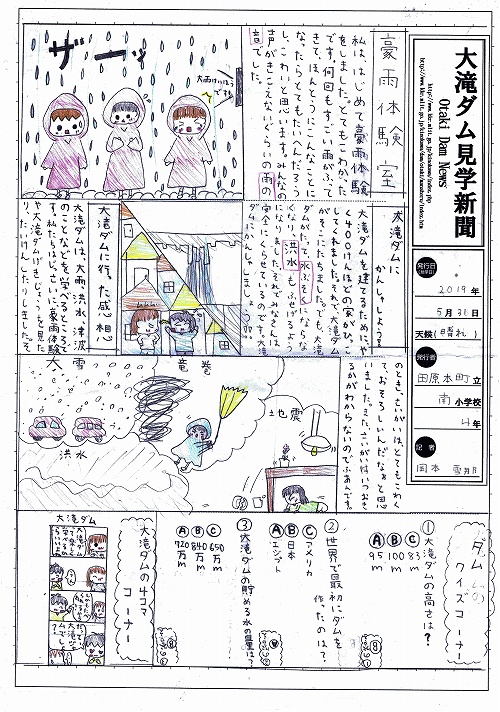 大滝ダム見学新聞
Otaki Dam News
発行日
2019年
5月31日
天候(晴れ)
発行者
田原本町立
南小学校
4年
記者
豪雨体験室
私は、はじめて豪雨体験
をしました。とてもこわかった
です。何回もすごい雨がふって
きて、ほんとうにこんなことに
なったらとてもたいへんだろう
し、こわいと思います。みんなの
声がきこえないぐらいの雨の
音でした。
ザーッ
大雨けいほう
です
大滝ダムに
かんしゃしよう。
大滝ダムを建てるために、や
く400けんほどの家がひっこ
してくれました。それで、大滝ダム
がそこにたちました。でも、大滝
ダムがたって、水ぶそくにならな
くなり、洪水もふせげるよう
になりました。それでみなさんは、
安全にくらせているのです。大滝
ダムにかんしゃしましょう。
大滝ダムに行った感想
大滝ダムは、大雨、洪水、津波
のことなどを学べるところで
す。私たちはじっさいに豪雨体験
や大滝ダムげきじょうを見た
り、たいけんしたりしました。そ
のときし、さいがいは、とてもこわく
て、おそろしいんだなぁと思
いました。また、さいがいはいつおき
るかがわからないのでふあんです。
大雪
竜巻
地震
洪水
ダムの
クイズコーナー
①大滝ダムの高さは?
Ⓐ95m
Ⓑ100m
Ⓒ83m
②世界で最初にダムを
作ったのは?
Ⓐエジプト
Ⓑ日本
Ⓒアメリカ
③大滝ダムの貯める水の量は?
Ⓐ720万m
Ⓑ840万m
Ⓒ650万m
大滝ダムの4コマ
コーナー
大滝ダム